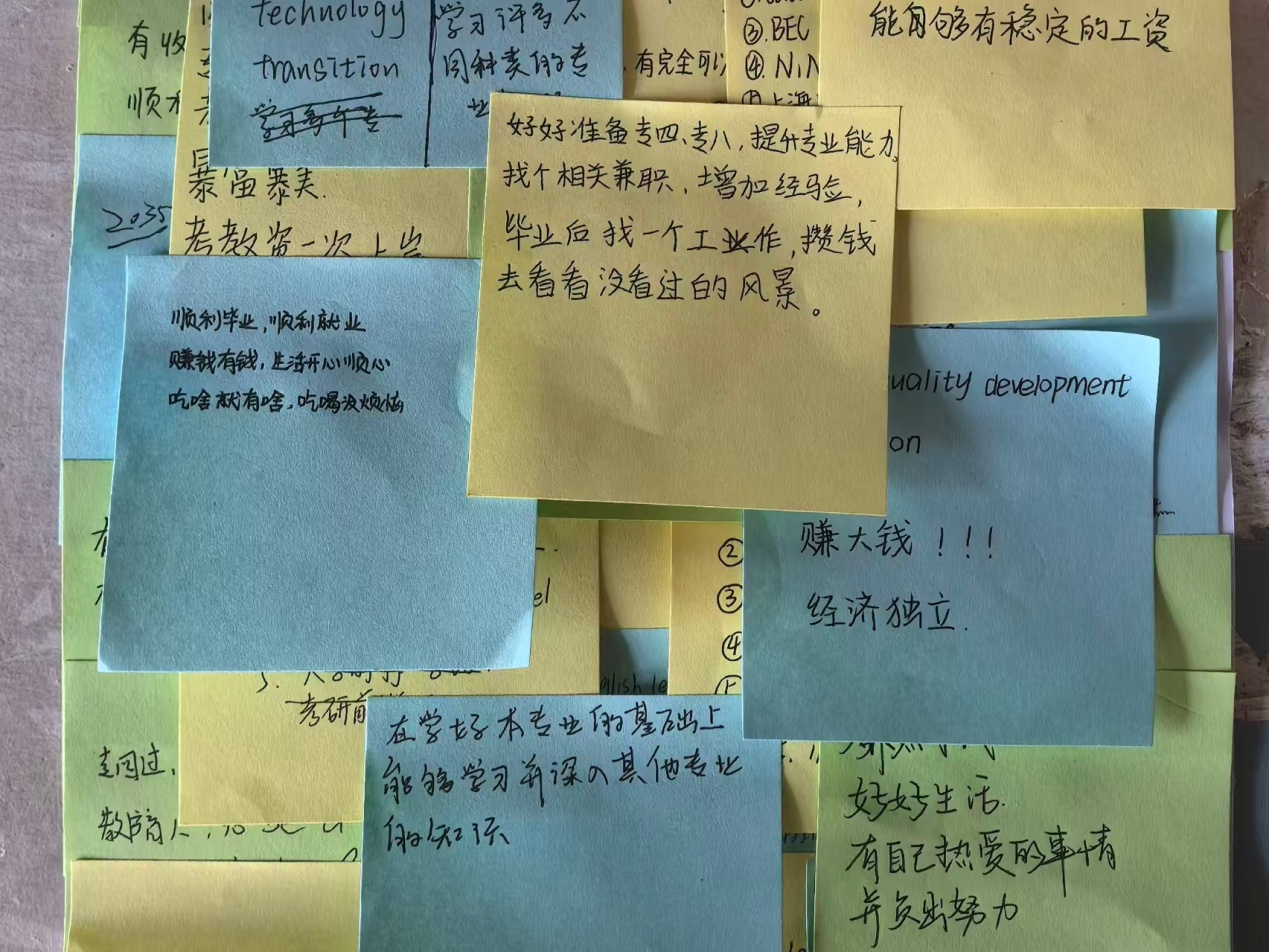 有收
顺利
technology
transition
学习许多不
同种类的专
业
有完全可以
③.BEC
④.
上海
能够有稳定的工资
暴富暴美.
考教资一次上岸
2035
好好准备专四、专八，提升专业能力
找个相关兼职，增加经验，
毕业后找一个工作，攒钱
去看看没看过的风景。
顺利毕业，顺利就业
赚钱有钱，生活开心顺心
吃啥就有啥，吃喝没烦恼
uality development
on
赚大钱！！！
经济独立.
②
③
④
el
3.
考研
glish le
在学好本专业的基础上
能够学习并深入其他专业
的知识
好好生活.
有自己热爱的事情
并负出努力